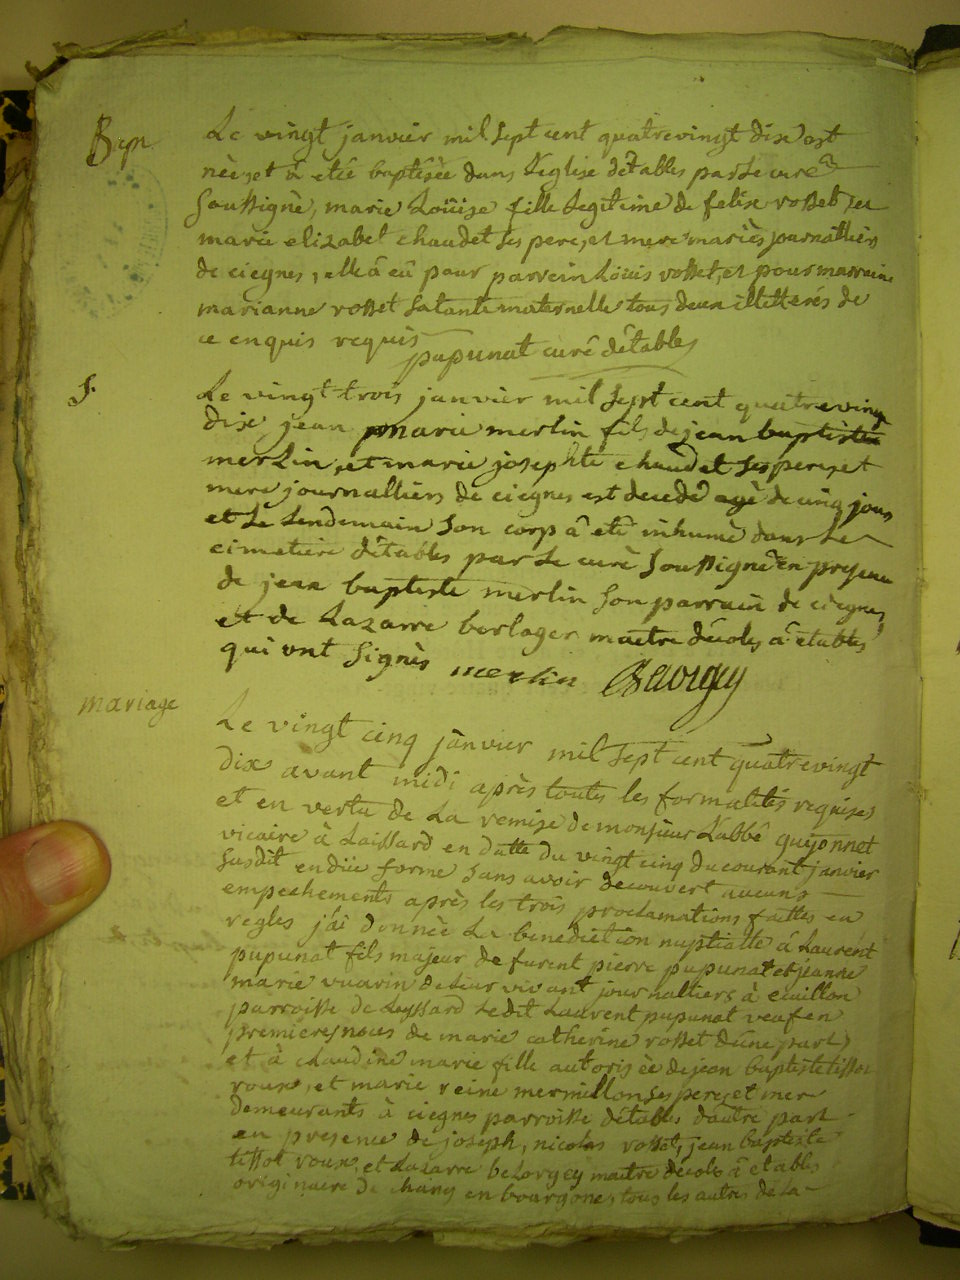 Bap
Le vingt janvier mil sept cent quatrevingt dix est
nèe, et à etêe baptisèe dans L'eglise dètables par Le curè
soussignè, marie Loüise fille Legitime de felix rosset, et
marie elizabet chaudet ses pere, et mere mariès journalliers
de ciegnes, elle â eû pour parrein Loüis rosset, et pour marreine
marianne rosset sa tante maternelle tous deux illitterés de
ce enquis requis
pupunat curé dêtables
S.
Le vingt trois janvier mil sept cent quatrevingt
dix jean marie merlin fils de jean baptiste
merlin, et marie josephte chaudet ses pere, et
mere journalliers de ciegnes est decedé agè de cinq jours
et Le Lendemain son corp â etê inhumè dans Le
cimetiere dêtables par Le curè soussignè en presence
de jean baptiste merlin son parrain de ciegnes
et de Lazarre berlager maitre dècoles â êtables
qui ont signès merlin
mariage
Le vingt cinq janvier mil sept cent quatrevingt
dix avant midi après toutes les formalités requises
et en vertu de La remise de monsieur L'abbé guyonnet
vicaire à Laissard en datte du vingt cinq du courant janvier
susdit en düe forme sans avoir decouvert aucuns
empechements après les trois proclamations faittes en
regles j'âi donnèe La benediction nuptialle â Laurent
pupunat fils majeur de furent pierre pupunat et jeanne
marie vuarin de Leur vivant journalliers à
parroisse de Leyssard Ledit Laurent pupunat veuf en
premieres nous de marie catherine rosset dûne part
et à claudine marie fille autorisèe de jean baptiste tissot
roux, et marie reine mermillon ses pere, et mere
demeurants à ciegnes parroisse dêtables d'autre part
en presence de joseph, nicolas rosset, jean baptiste
tissot roux, et Lazarre belorgey maitre dècole â etables
originaire de chany en bourgone, tous les autres de La